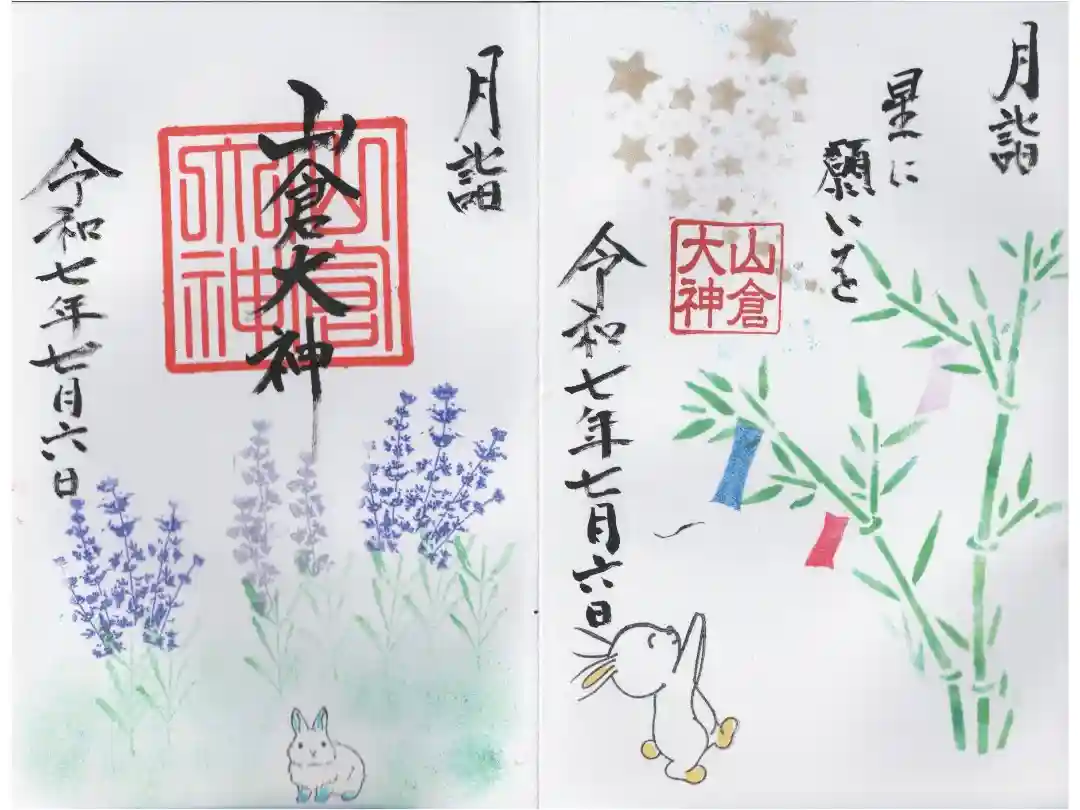 月詣
星に
願いを
山倉
大神
令和七年七月六日
月詣
山倉大神
山倉
大神
令和七年七月六日